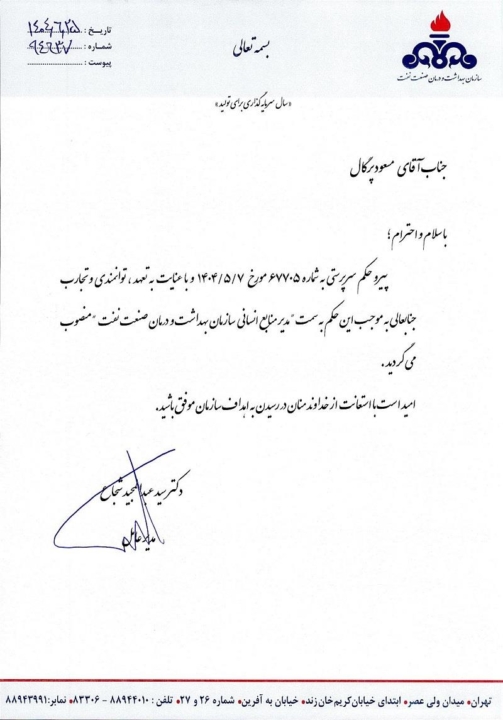 بسمه تعالی
تاریخ : ۱۴۰۴/۶/۲۵
شماره : ۹۴۶۳۷
پیوست :
سازمان بهداشت و درمان صنعت نفت
«سال سرمایه گذاری برای تولید»
جناب آقای مسعود پرگال
با سلام و احترام ؛
پیرو حکم سرپرستی به شماره ۶۷۷۰۵ مورخ ۱۴۰۴/۵/۷ و با عنایت به تعهد ، توانمندی و تجارب
جنابعالی به موجب این حکم به سمت "مدیر منابع انسانی سازمان بهداشت و درمان صنعت نفت" منصوب
می گردید .
امید است با استعانت از خداوند منان در رسیدن به اهداف سازمان موفق باشید .
دکتر سید عبدالمجید شجاع
مدیرعامل
تهران• میدان ولی عصر• ابتدای خیابان کریم خان زند• خیابان به آفرین• شماره ۲۶ و ۲۷• تلفن : ۸۸۹۴۴۰۱۰ - ۸۳۳۰۶• نمابر:۸۸۹۴۳۹۹۱